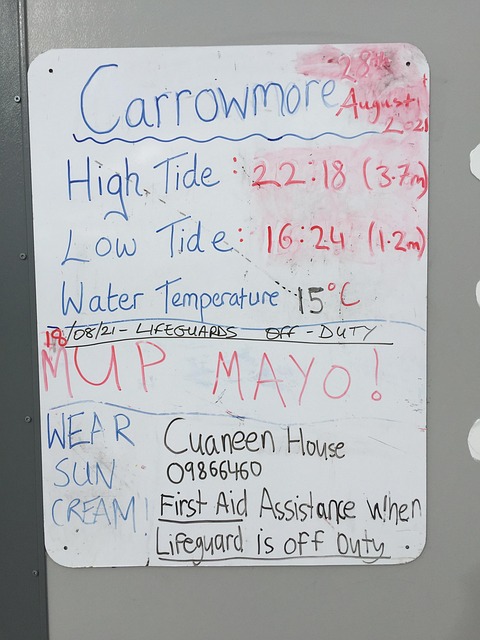 Carrowmore
28th
August
2021
High Tide: 22:18 (3.7m)
Low Tide: 16:24 (1.2m)
Water Temperature 15°C
18/08/21 - LIFEGUARDS OFF - DUTY
MUP MAYO!
WEAR
SUN
CREAM!
Cuaneen House
09866460
First Aid Assistance when
Lifeguard is off Duty